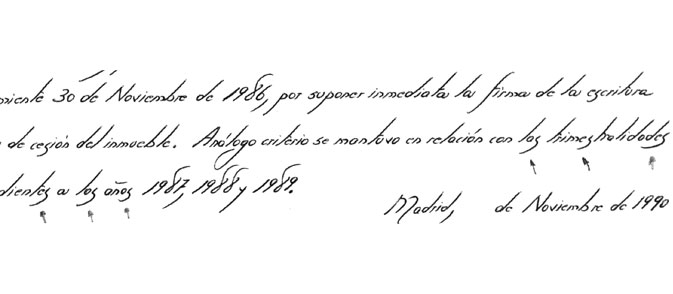 miente 30 de Noviembre de 1986, por suponer inmediata la firma de la escritura
de cesión del inmueble. Análogo criterio se mantuvo en relación con las trimestralidades
dientes a los años 1987, 1988 y 1989.
Madrid, de Noviembre de 1990